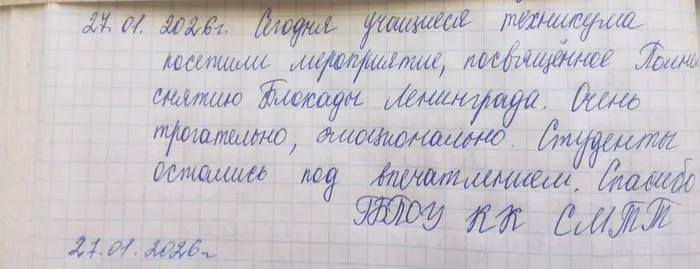 27.01. 2026г. Сегодня учащиеся техникума
посетили мероприятие, посвящённое Полно
снятию Блокады Ленинграда. Очень
трогательно, эмоционально. Студенты
остались под впечатлением. Спасибо
ГБПОУ КК СМТТ
27.01.2026г